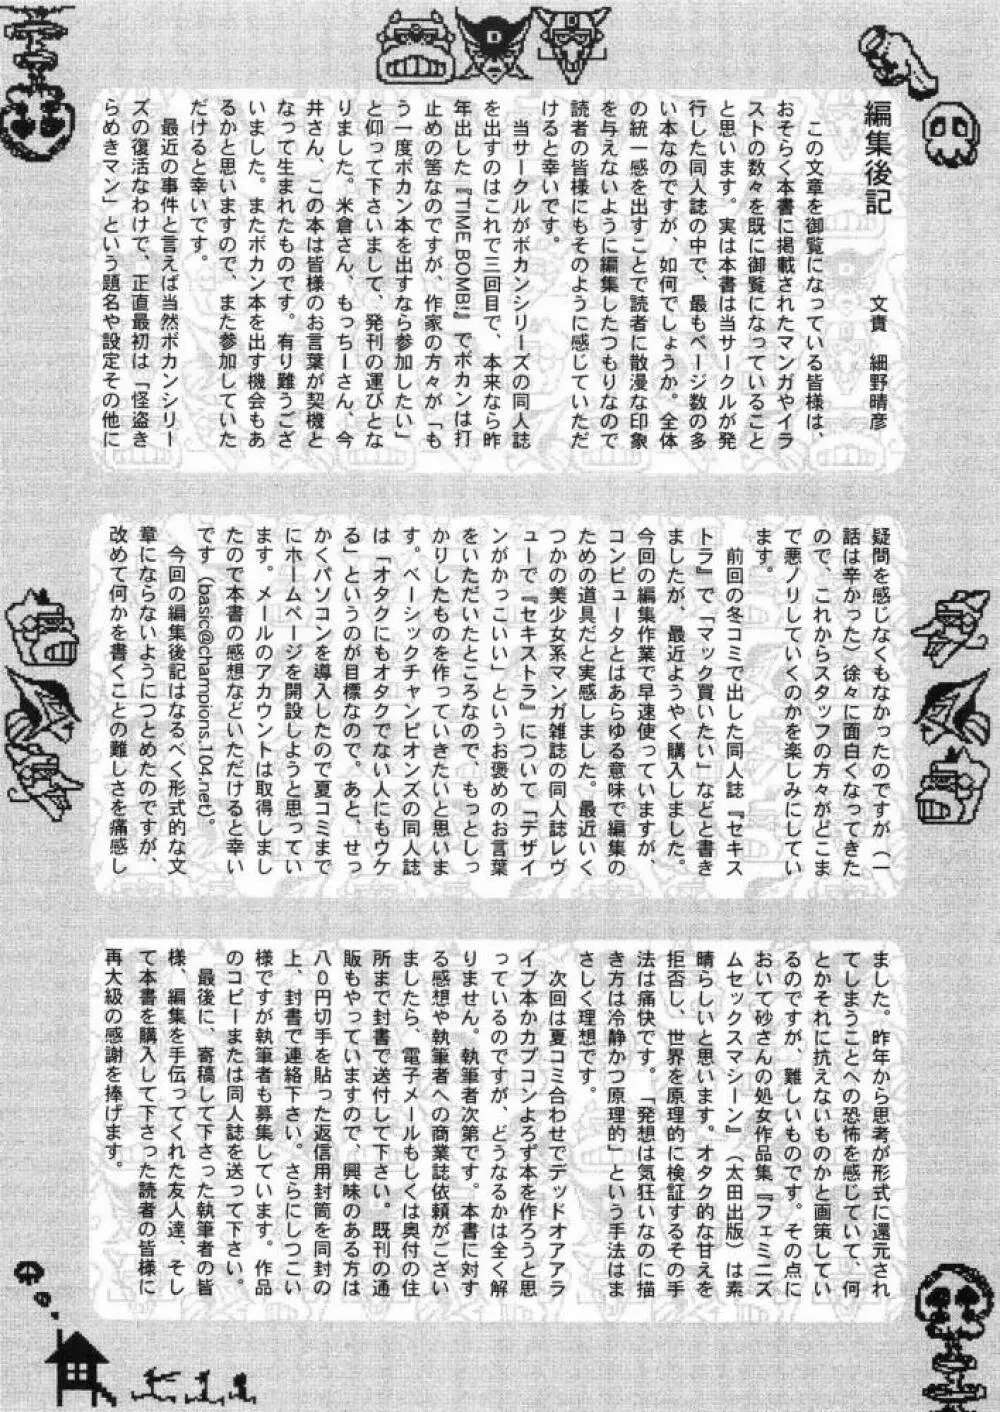 編集後記
文責 細野晴彦
この文章を御覧になっている皆様は、
おそらく本書に掲載されたマンガやイラ
ストの数々を既に御覧になっていること
と思います。実は本書は当サークルが発
行した同人誌の中で、最もページ数の多
い本なのですが、如何でしょうか。全体
の統一感を出すことで読者に散漫な印象
を与えないように編集したつもりなので
読者の皆様にもそのように感じていただ
けると幸いです。
当サークルがボカンシリーズの同人誌
を出すのはこれで三回目で、本来なら昨
年出した『TIME BOMB!』でボカンは打
止めの筈なのですが、作家の方々が「も
う一度ボカン本を出すなら参加したい」
と仰って下さいまして、発刊の運びとな
りました。米倉さん、もっちーさん、今
井さん、この本は皆様のお言葉が契機と
なって生まれたものです。有り難うござ
いました。またボカン本を出す機会もあ
るかと思いますので、また参加していた
だけると幸いです。
最近の事件と言えば当然ボカンシリー
ズの復活なわけで、正直最初は「怪盗き
らめきマン」という題名や設定その他に
疑問を感じなくもなかったのですが（一
話は辛かった）徐々に面白くなってきた
ので、これからスタッフの方々がどこま
で悪ノリしていくのかを楽しみにしてい
ます。
前回の冬コミで出した同人誌『セキス
トラ』で「マック買いたい」などと書き
ましたが、最近ようやく購入しました。
今回の編集作業で早速使っていますが、
コンピュータとはあらゆる意味で編集の
ための道具だと実感しました。最近いく
つかの美少女系マンガ雑誌の同人誌レヴ
ューで『セキストラ』について「デザイ
ンがかっこいい」というお褒めのお言葉
をいただいたところなので、もっとしっ
かりしたものを作っていきたいと思いま
す。ベーシックチャンピオンズの同人誌
は「オタクにもオタクでない人にもウケ
る」というのが目標なので。あと、せっ
かくパソコンを導入したので夏コミまで
にホームページを開設しようと思ってい
ます。メールのアカウントは取得しまし
たので本書の感想などいただけると幸い
です（basic@champions.104.net）。
今回の編集後記はなるべく形式的な文
章にならないようにつとめたのですが、
改めて何かを書くことの難しさを痛感し
ました。昨年から思考が形式に還元され
てしまうことへの恐怖を感じていて、何
とかそれに抗えないものかと画策してい
るのですが、難しいものです。その点に
おいて砂さんの処女作品集『フェミニズ
ムセックスマシーン』（太田出版）は素
晴らしいと思います。オタク的な甘えを
拒否し、世界を原理的に検証するその手
法は痛快です。「発想は気狂いなのに描
き方は冷静かつ原理的」という手法はま
さしく理想です。
次回は夏コミ合わせでデッドオアアラ
イブ本かカプコンよろず本を作ろうと思
っているのですが、どうなるかは全く解
りません。執筆者次第です。本書に対す
る感想や執筆者への商業誌依頼がござい
ましたら、電子メールもしくは奥付の住
所まで封書で送付して下さい。既刊の通
販もやっていますので、興味のある方は
八〇円切手を貼った返信用封筒を同封の
上、封書で連絡下さい。さらにしつこい
様ですが執筆者も募集しています。作品
のコピーまたは同人誌を送って下さい。
最後に、寄稿して下さった執筆者の皆
様、編集を手伝ってくれた友人達、そし
て本書を購入して下さった読者の皆様に
再大級の感謝を捧げます。